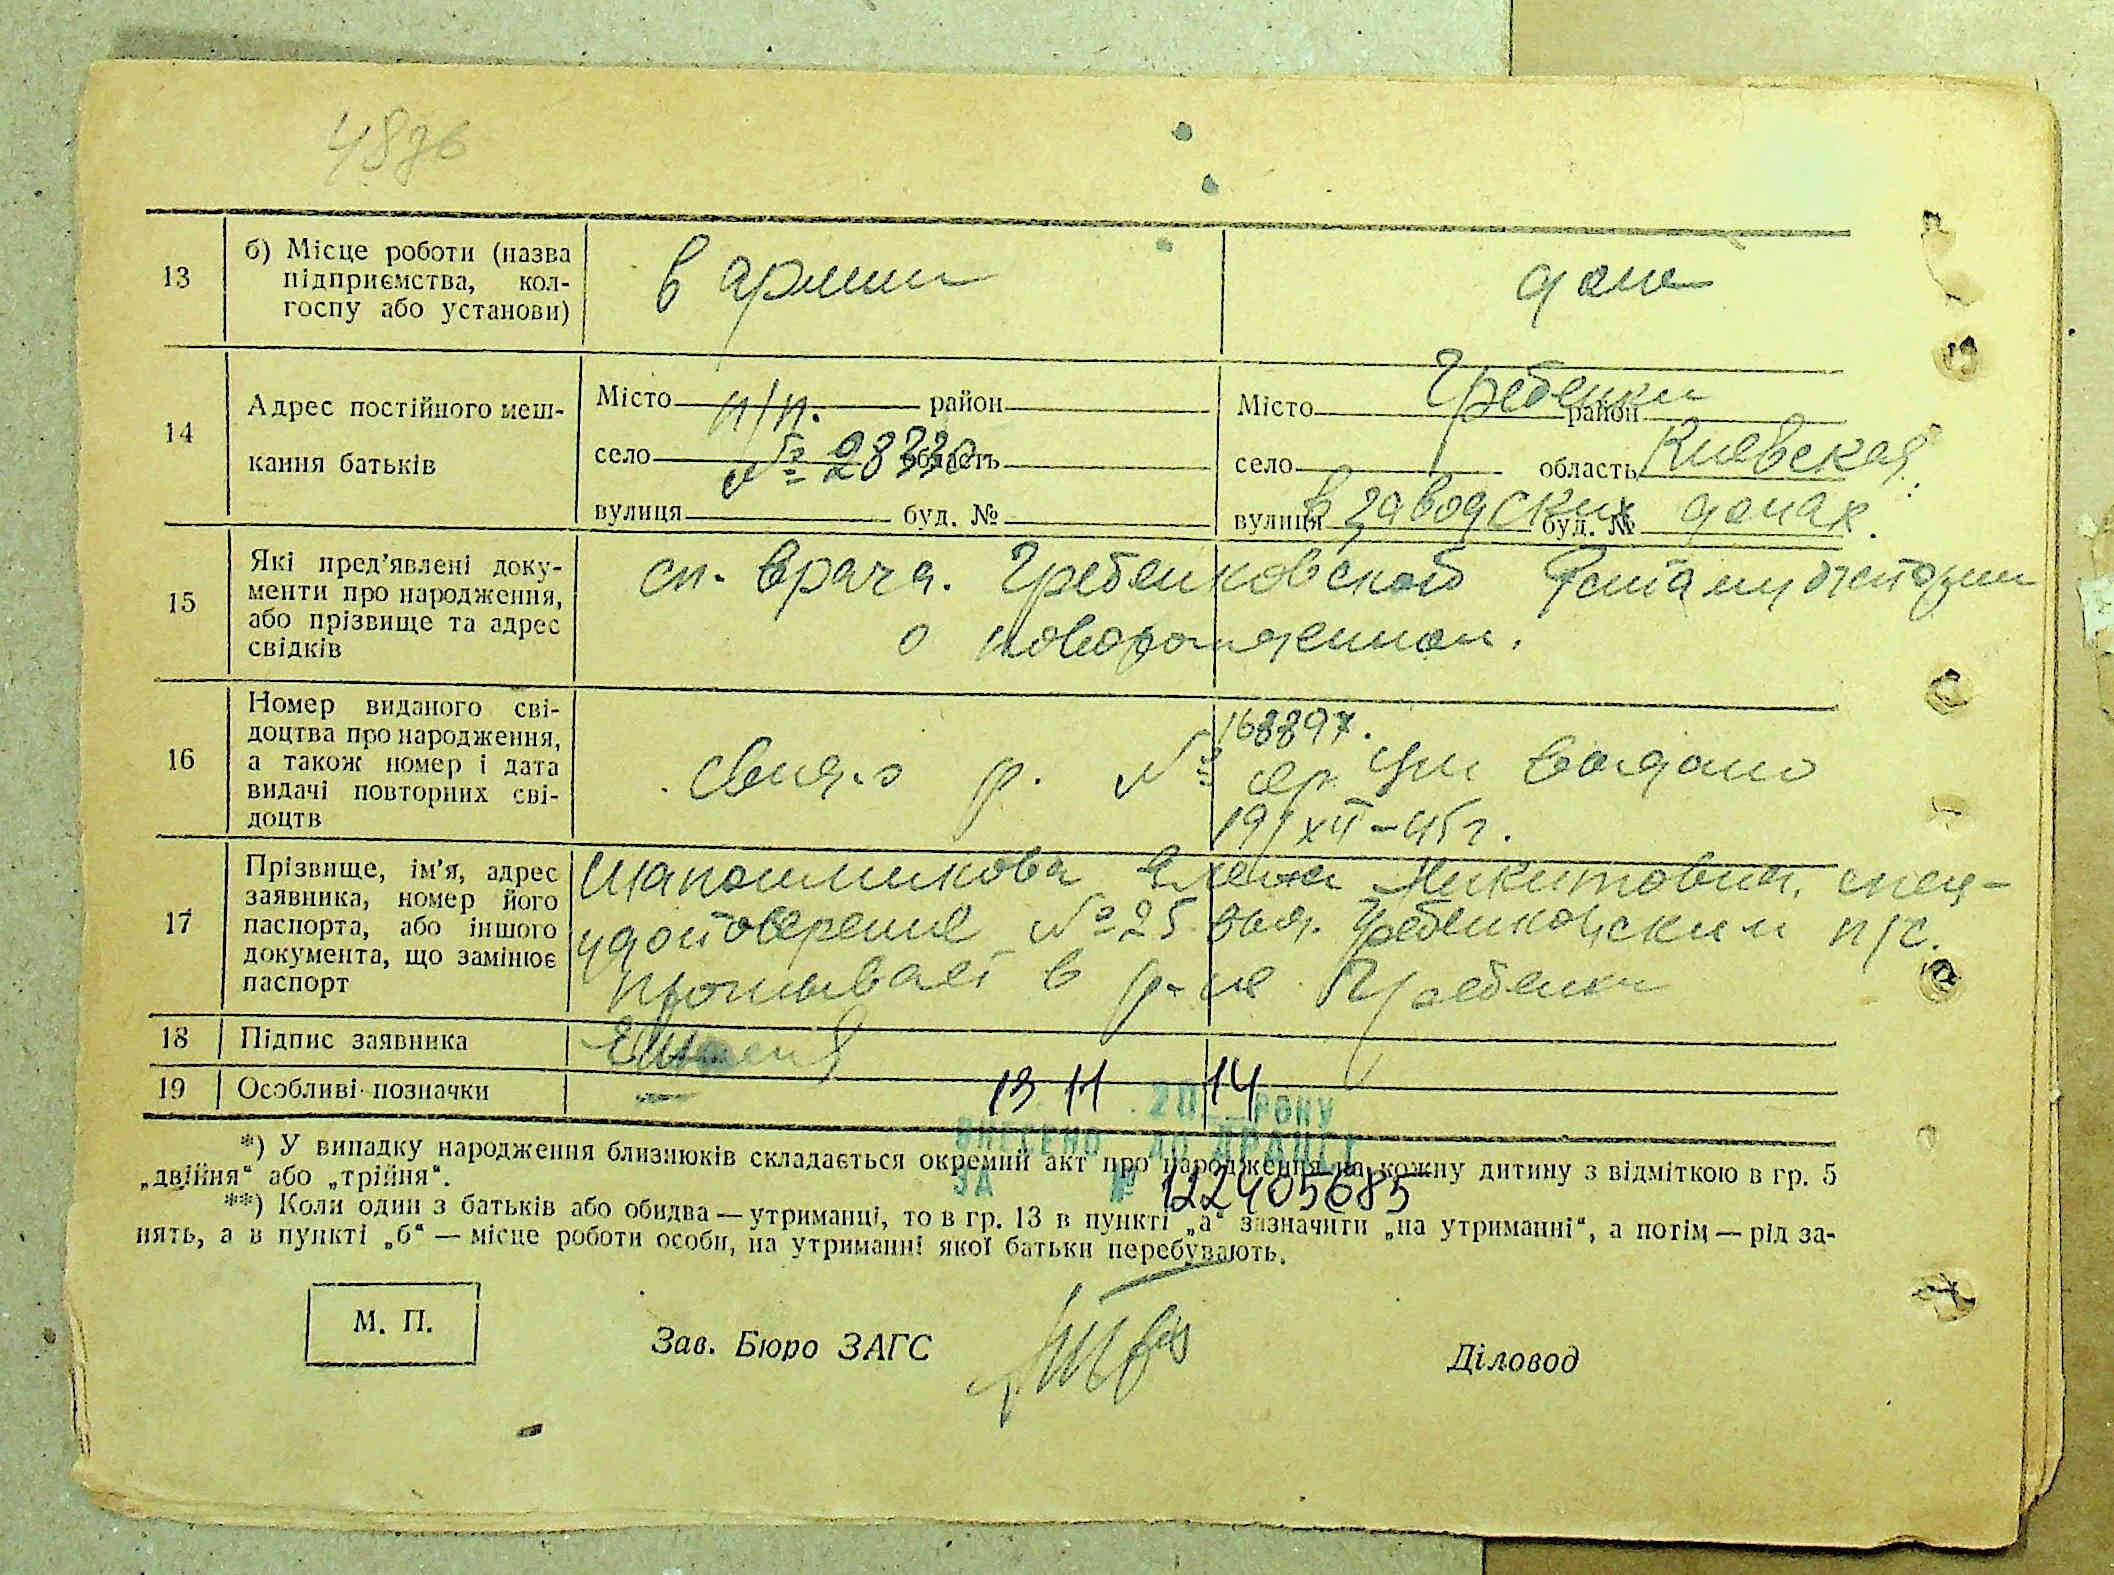 13
б) Місце роботи (назва
підприємства, кол-
госпу або установи)
в армии
дома
14
Адрес постійного меш-
кання батьків
Місто п/п. район
село № 28330 область
вулиця буд. №
Місто Гребенки район
село область Киевская
вулиця в заводских домах. буд. №
15
Які пред'явлені доку-
менти про народження,
або прізвище та адрес
свідків
сп. врача. Гребенковской
о новорожденном.
16
Номер виданого сві-
доцтва про народження,
а також номер і дата
видачі повторних сві-
доцтв
168897.
свид.о р. № сер. выдано
19/XII-45г.
17
Прізвище, ім'я, адрес
заявника, номер його
паспорта, або іншого
документа, що замінює
паспорт
Шапошникова Никитовна,
удостоверение №25 выд. Гребенковским п/с.
проживает в р-не Гребенки
18
Підпис заявника
19
Особливі позначки
—
13 11 2014 РОКУ
ВНЕСЕНО ДО ДРАЦСГ
ЗА № 122405685
*) У випадку народження близнюків складається окремий акт про народження на кожну дитину з відміткою в гр. 5
„двійня“ або „трійня“.
**) Коли один з батьків або обидва — утриманці, то в гр. 13 в пункті „а“ зазначити „на утриманні“, а потім — рід за-
нять, а в пункті „б“ — місце роботи особи, на утриманні якої батьки перебувають.
М. П.
Зав. Бюро ЗАГС
Діловод